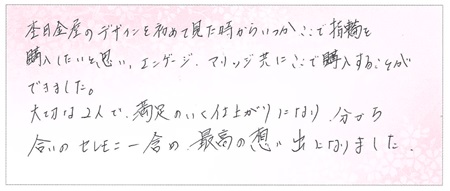 杢目金屋のデザインを初めて見た時からいつかここで指輪を
購入したいと思い、エンゲージ、マリッジ共にここで購入することが
できました。
大切な2人で、満足のいく仕上がりになり、分かち
合いのセレモニー含め、最高の想い出になりました。